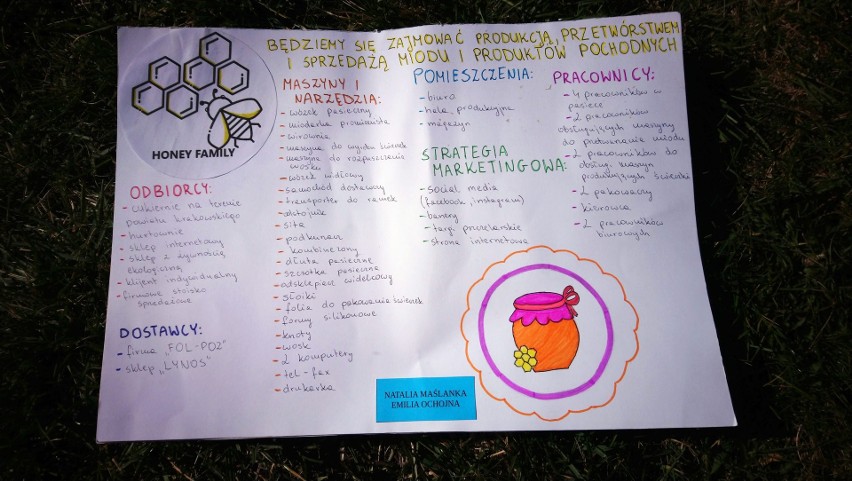 BĘDZIEMY SIĘ ZAJMOWAĆ PRODUKCJĄ, PRZETWÓRSTWEM
I SPRZEDAŻĄ MIODU I PRODUKTÓW POCHODNYCH
HONEY FAMILY
ODBIORCY:
- cukiernie na terenie
powiatu krakowskiego
- hurtownie
- sklep internetowy
- sklep z żywnością
ekologiczną
- klient indywidualny
- firmowe stoisko
sprzedażowe
DOSTAWCY:
- firma "FOL-POZ"
- sklep "LYNOS"
MASZYNY I
NARZĘDZIA:
- wózek pasieczny
- miodarka
- wirownia
- maszyna do wyrobu świeczek
- maszyna do rozpuszczania
wosku
- wózek widłowy
- samochód dostawczy
- transporter do ramek
- odstojnik
- sita
- podkurzacz
- kombinezony
- dłuta pasieczne
- szczotka pasieczna
- odsklepiacz widelcowy
- słoiki
- folia do pakowania świeczek
- formy silikonowe
- knoty
- wosk
- 2 komputery
- tel-fax
- drukarka
POMIESZCZENIA:
- biuro
- hala produkcyjna
- magazyn
STRATEGIA
MARKETINGOWA:
- social media
(facebook, instagram)
- banery
- targi pszczelarskie
- strona internetowa
PRACOWNICY:
- 4 pracowników w
pasiece
- 2 pracowników
obsługujących maszyny
do przetwarzania miodu
- 2 pracowników do
obsług. maszyn
produkujących świeczki
- 2 pakowaczy
- kierowca
- 2 pracowników
biurowych
NATALIA MAŚLANKA
EMILIA OCHOJNA